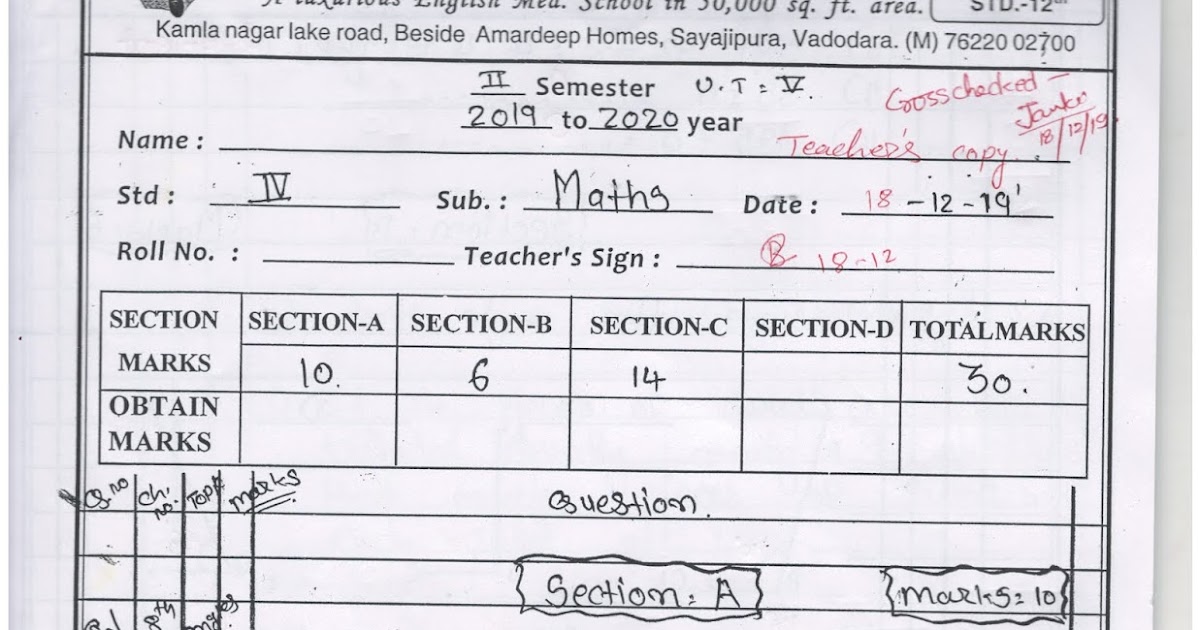 A Luxurious English Med. School in 50,000 sq. ft. area.
STD.-12
Kamla nagar lake road, Beside Amardeep Homes, Sayajipura, Vadodara. (M) 76220 02700
II Semester U.T = V.
Crosschecked
2019 to 2020 year
18/12/19
Name : Teacher's copy.
Std : IV Sub. : Maths Date : 18-12-19'
Roll No. : Teacher's Sign : 18-12
SECTION SECTION-A SECTION-B SECTION-C SECTION-D TOTAL MARKS
MARKS 10. 6 14 30.
OBTAIN
MARKS
Q.no Ch. no. Topic marks Question.
Section: A Marks: 10
8th